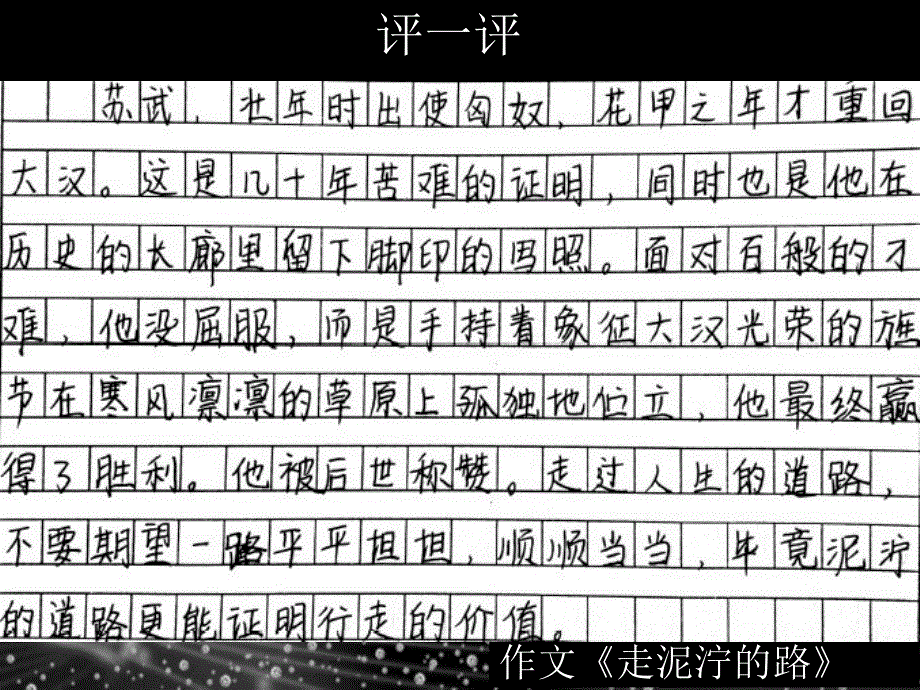 评一评
苏武，壮年时出使匈奴，花甲之年才重回
大汉。这是几十年苦难的证明，同时也是他在
历史的长廊里留下脚印的写照。面对百般的刁
难，他没屈服，而是手持着象征大汉光荣的旌
节在寒风凛凛的草原上孤独地伫立，他最终赢
得了胜利。他被后世称赞。走过人生的道路，
不要期望一路平平坦坦，顺顺当当，毕竟泥泞
的道路更能证明行走的价值。
作文《走泥泞的路》